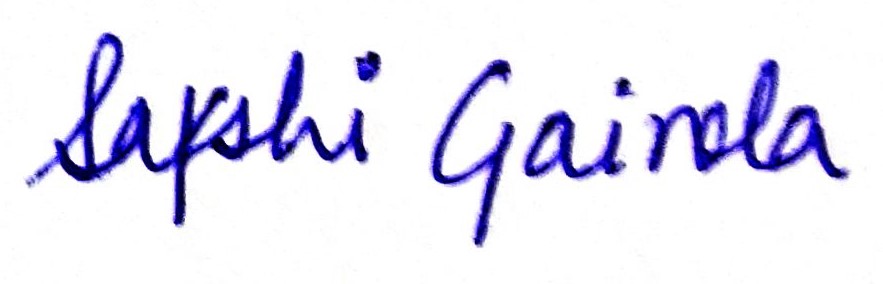 Sakshi Gairola